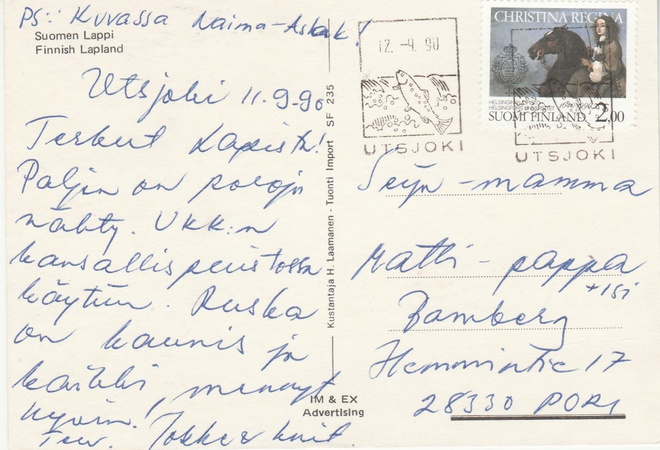 PS: Kuvassa Naima-Aslak!
Suomen Lappi
Finnish Lapland
Utsjoki 11.9-90
Terveet Lapista!
Paljon on poroja
nähty. UKK:n
kansallispuistossa
käytiin. Ruska
on kaunis ja
kaikki, mennyt
hyvin!
Terv.
Kustantaja H. Laamanen - Tuonti Import SF 235
IM & EX
Advertising
12. -9. 90
UTSJOKI
CHRISTINA REGINA
SUOMI FINLAND 2,00
UTSJOKI
Seija - mamma
Matti - pappa
+ isi
Bamberg
17
28330 PORI